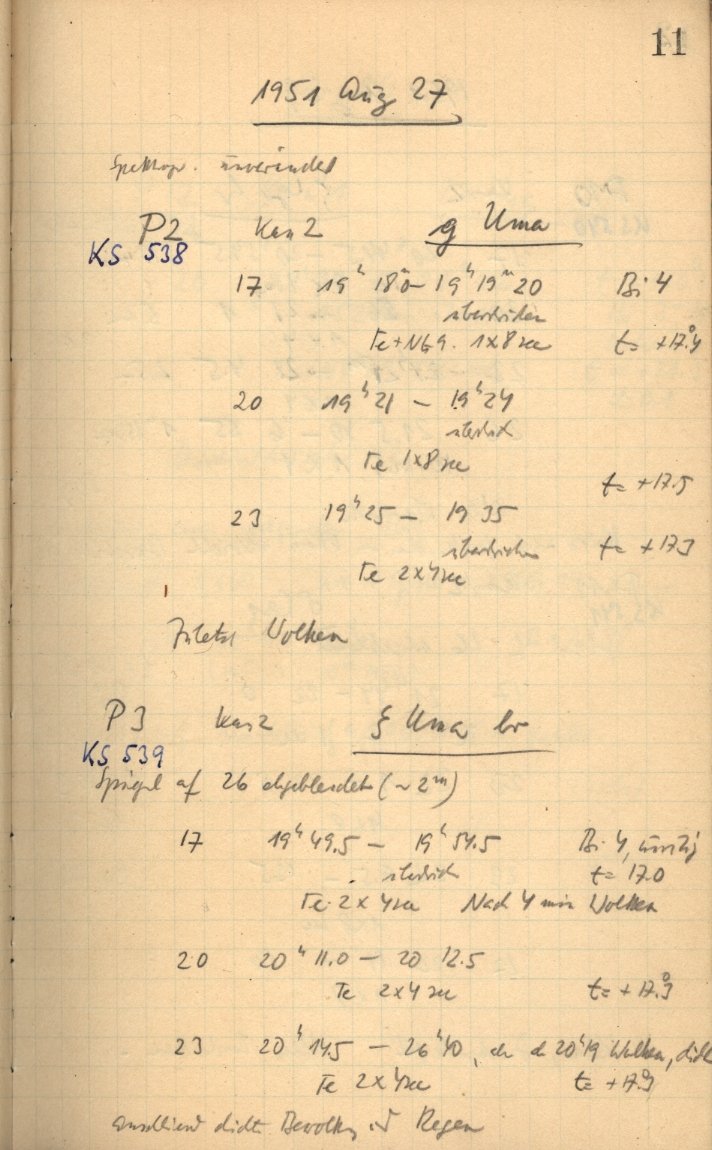 11
1951 Aug. 27
Spektogr. unverändert
P2 Kas 2 g Uma
KS 538
17 19ʰ 18.0 – 19ʰ 19ᵐ 20 Bi 4
überstrichen
Te+Nb 9. 1x8 sec t= +17.°4
20 19ʰ 21 – 19ʰ 24
überstrich
Te 1x8 sec
t= +17.5
23 19ʰ 25 – 19 35
überstrichen t= +17.3
Te 2x4 sec
Zuletzt Wolken
P3 Kas 2 ξ Uma br
KS 539
Spiegel auf 26 abgeblendet (~2ᵐ)
17 19ʰ 49.5 – 19ʰ 54.5 Bi 4, dunstig
überstrich t= 17.0
Te. 2 x 4 sec Nach 4 min Wolken
20 20ʰ 11.0 – 20 12.5
Te 2x4 sec t= +17.°3
23 20ʰ 14.5 – 20ʰ 40, 20ʰ 19 Wolken, dicht
Te 2x4 sec t= +17.°3
anschließend dichte Bewölkg Regen